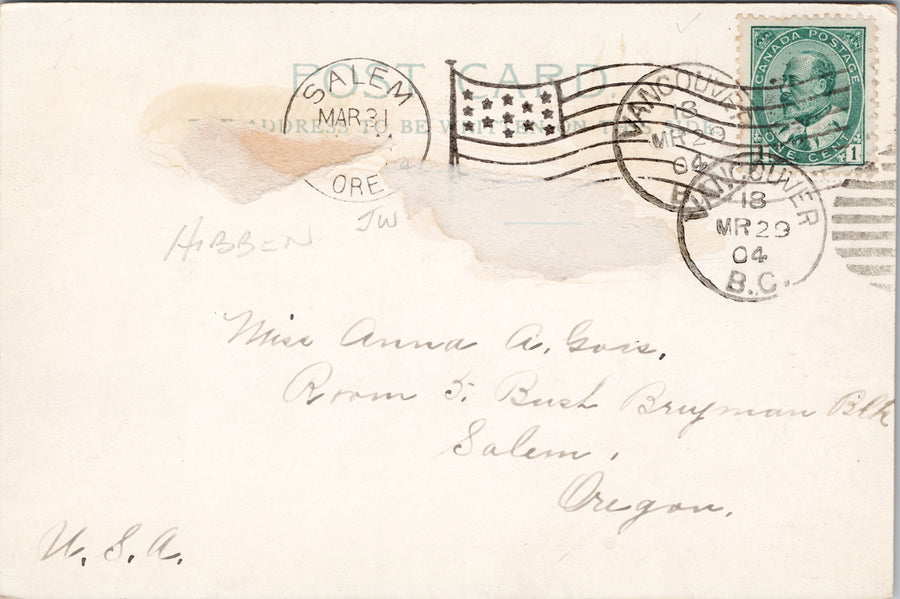 POST CARD
SALEM
MAR 31
ORE
THE ADDRESS TO BE WRITTEN ON THIS SIDE
VANCOUVER
18
MR 29
04
B
CANADA POSTAGE
ONE CENT
1
VANCOUVER
18
MR 29
04
B.C.
HIBBEN
JW
Miss Anna A. Gois.
Room 5. Bush Breyman Blk
Salem,
Oregon.
U. S. A.